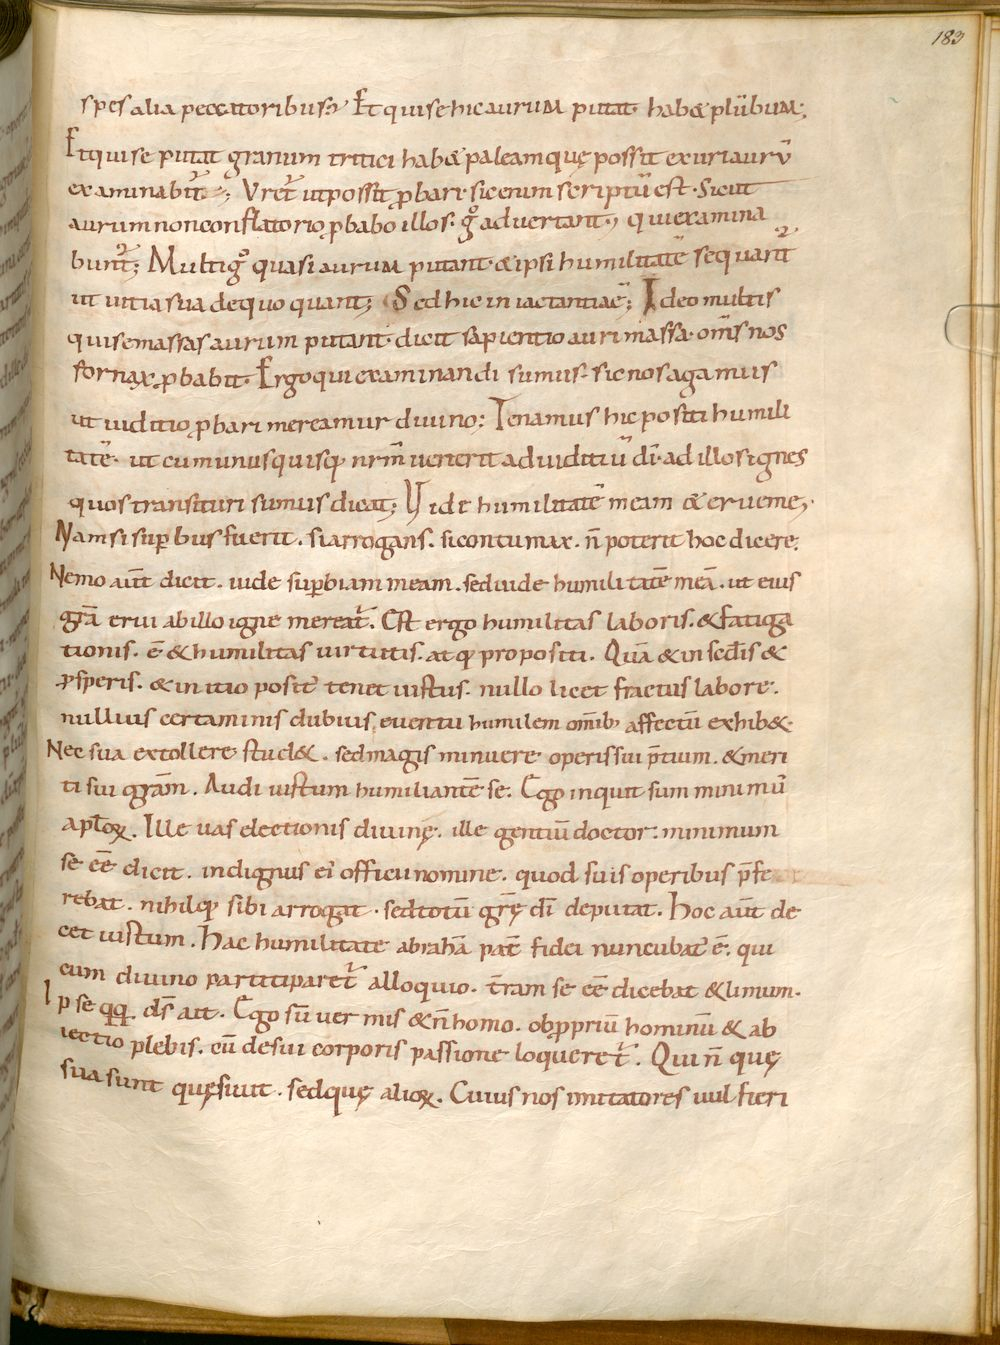 183
spes alia peccatoribus; Et qui se hic aurum putat habe& plūbum;
Et qui se putat granum tritici habe& paleam quę possit exuri aurū
examinabit̄; Vret̄ ut possit ꝓbari sic enim scriptū est. Sicut
aurum non conflatorio ꝓbabo illos. gͦ advertant, qui examina
bunt̄; Multi gͦ quasi aurum putant & ipsi humilitatē sequant̄
ut vitia sua dequoquant; Sed hic in iactantia ē; Ideo multis
qui se massas aurum putant dicit sapientio auri massa. om̄s nos
fornax ꝓbabit. Ergo qui examinandi sumus sic nos agamus
ut iuditio ꝓbari mereamur divino; Tenamus hic positi humili
tatē. ut cum unusquisq; nr̄m venerit ad iuditiū dī. ad illos ignes
quos transituri sumus dicat; Vide humilitatē meam & erue me,
Nam si suꝑbus fuerit. si arrogans. si contumax. n̄ poterit hoc dicere.
Nemo aūt dicit. vide suꝑbiam meam. sed vide humilitatē meā. ut eius
gr̄a erui ab illo igne mereat̄. Est ergo humilitas laboris. & fatiga
tionis. ē & humilitas virtutis. atq; propositi. Quā & in sedīs &
ꝓsperis. & in itio posit̄ tenet iustus. nullo licet fractus labore.
nullius certaminis dubius eventu humilem omīb; affectū exhib&.
Nec sua extollere stud&. sed magis minuere operis sui p̄tium. & meri
ti sui gr̄am. Audi iustum humiliantē se. Ego inquit sum minimū
apl̄oꝝ. Ille vas electionis divinę. ille gentiū doctor. minimum
se ēē dicit. indignus ei officii nomine. quod suis operibus p̄fe
rebat. nihilq; sibi arrogat. sed totū gr̄ę dī deputat. Hoc aūt de
cet iustum. Hac humilitate abrahā pat̄ fidei nuncubat̄ ē. qui
cum divino partitiparet̄ alloquio. t̄ram se ēē dicebat & limum.
Ipse qq; ds̄ ait. Ego sū vermis & n̄ homo. obꝓpriū hominū & ab
iectio plebis. cū de sui corporis passione loqueret̄. Qui n̄ quę
sua sunt quęsivit. sed quę alioꝝ. Cuius nos imitatores vul fieri